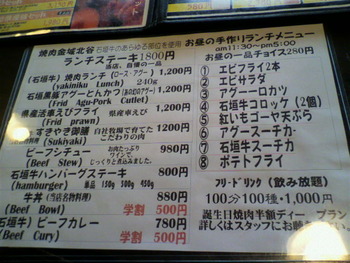 焼肉金城北谷 石垣牛のあらゆる部位を使用
ランチステーキ1800円
当店、自慢の一品
(石垣牛) 焼肉ランチ (ロース・アグー) 1,200円
(yakiniku Lunch) 240g
石垣黒豚アグーとんかつ 1,200円
(Frid Agu-Pork Cutlet)
県産活車えびフライ 県産車えび 1,200円
(Frid prawn)
すきやき御膳 自社牧場で育てた こだわりの肉 1200円
(Sukiyaki)
ビーフシチュー お肉たっぷり ワインで じっくりと煮込みました。 980円
(Beef Stew)
石垣牛ハンバーグステーキ 800円
(hamburger) 単品 150g 300g 450g
牛丼 (当店名物料理) 880円
(Beef Bowl) 学割 500円
石垣牛) ビーフカレー 780円
(Beef Cury) 学割 500円
お昼の手作りランチメニュー
am11:30~pm5:00
お昼の一品チョイス280円
① エビフライ2本
② エビサラダ
③ アグーロカツ
④ 石垣牛コロッケ (2個)
⑤ 紅いもゴーヤ天ぷら
⑥ アグースーチカー
⑦ 石垣牛スーチカー
⑧ ポテトフライ
フリードリンク (飲み放題)
100分100種・1,000円
誕生日焼肉半額ディー プラン
詳しくはスタッフにお願い